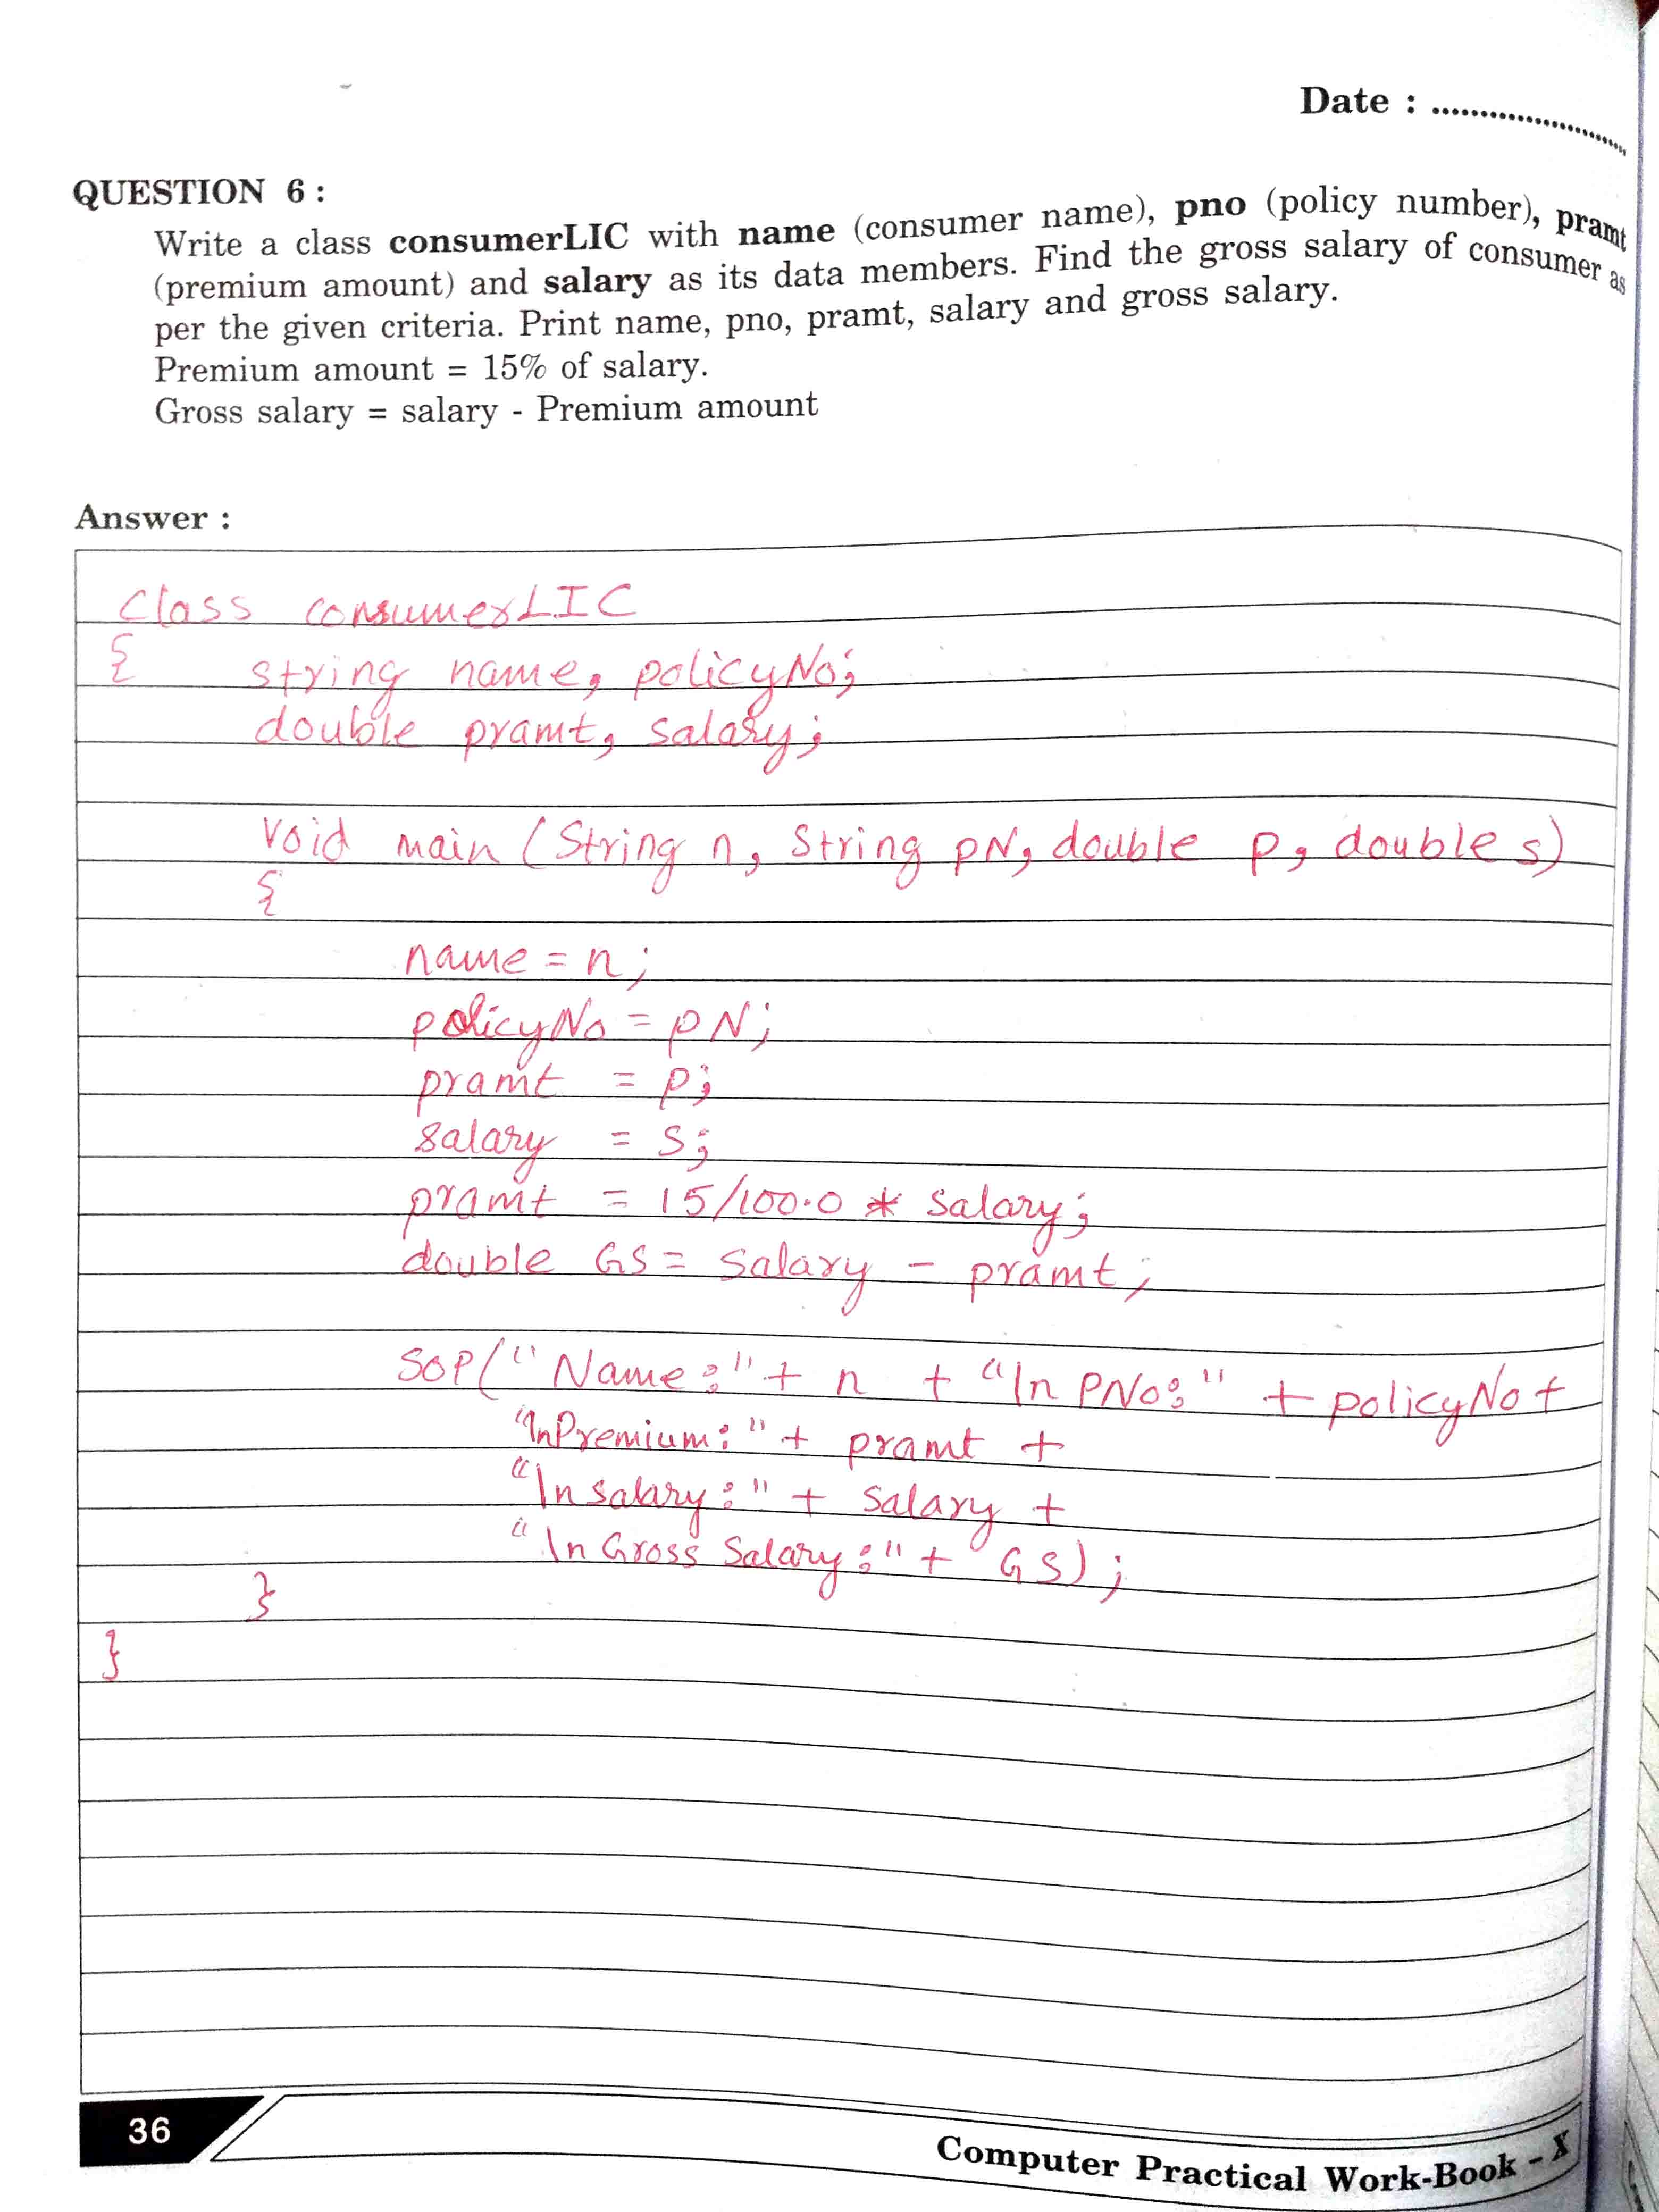 Date : ........................
QUESTION 6 :
Write a class consumerLIC with name (consumer name), pno (policy number), pramt
(premium amount) and salary as its data members. Find the gross salary of consumer as
per the given criteria. Print name, pno, pramt, salary and gross salary.
Premium amount = 15% of salary.
Gross salary = salary - Premium amount
Answer :
Class consumerLIC
{ string name, policyNo;
double pramt, salary;
void main (String n, String pN, double p, double s)
{
name = n;
policyNo = pN;
pramt = p;
salary = s;
pramt = 15/100.0 * salary;
double GS = salary - pramt;
SOP("Name:" + n + "\n PNo:" + policyNo +
"\nPremium:" + pramt +
"\n salary:" + salary +
"\n Gross Salary:" + GS);
}
}
36
Computer Practical Work-Book - X